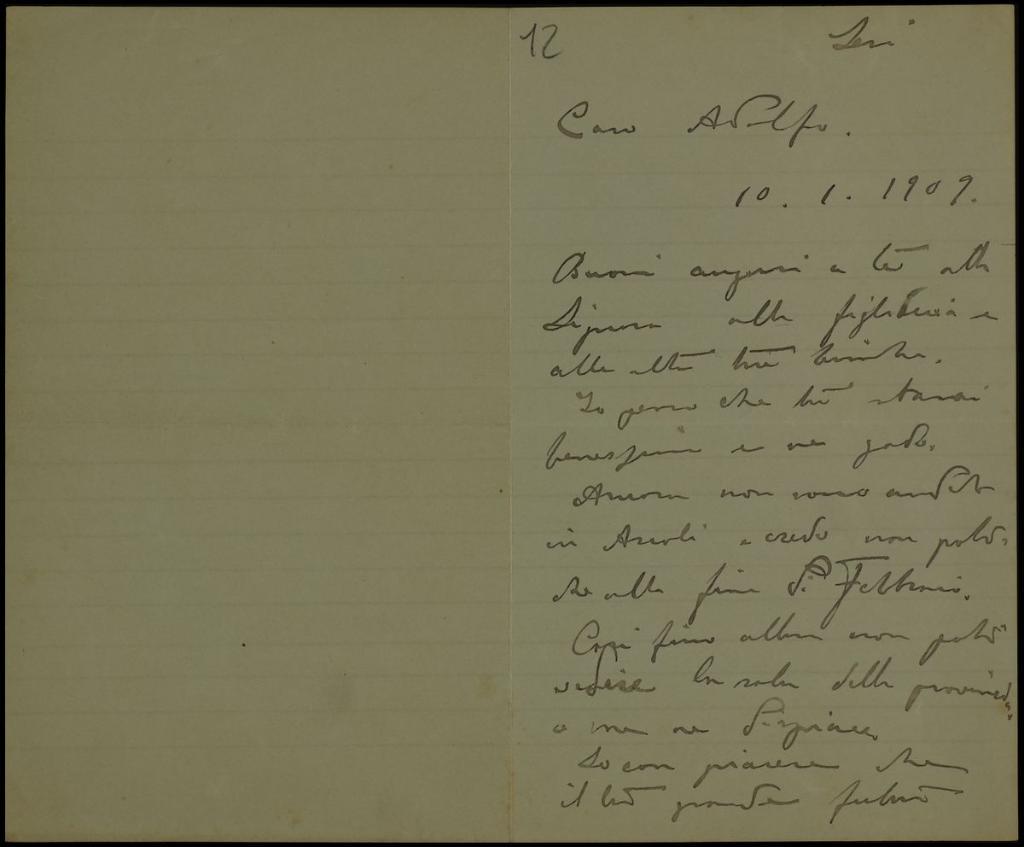 12
Caro Adolfo.
10. 1. 1909.
Buoni auguri a te alla
Signora alla e
alle altre tre bimbe.
Io penso che tu starai
benessimo e ne godo.
Ancora non sono andato
in Ascoli e credo non potrò
che alla fine di Febbraio.
Così fino allora non potrò
vedere la sala della provincia
e me ne dispiace.
So con piacere che
il tuo grande